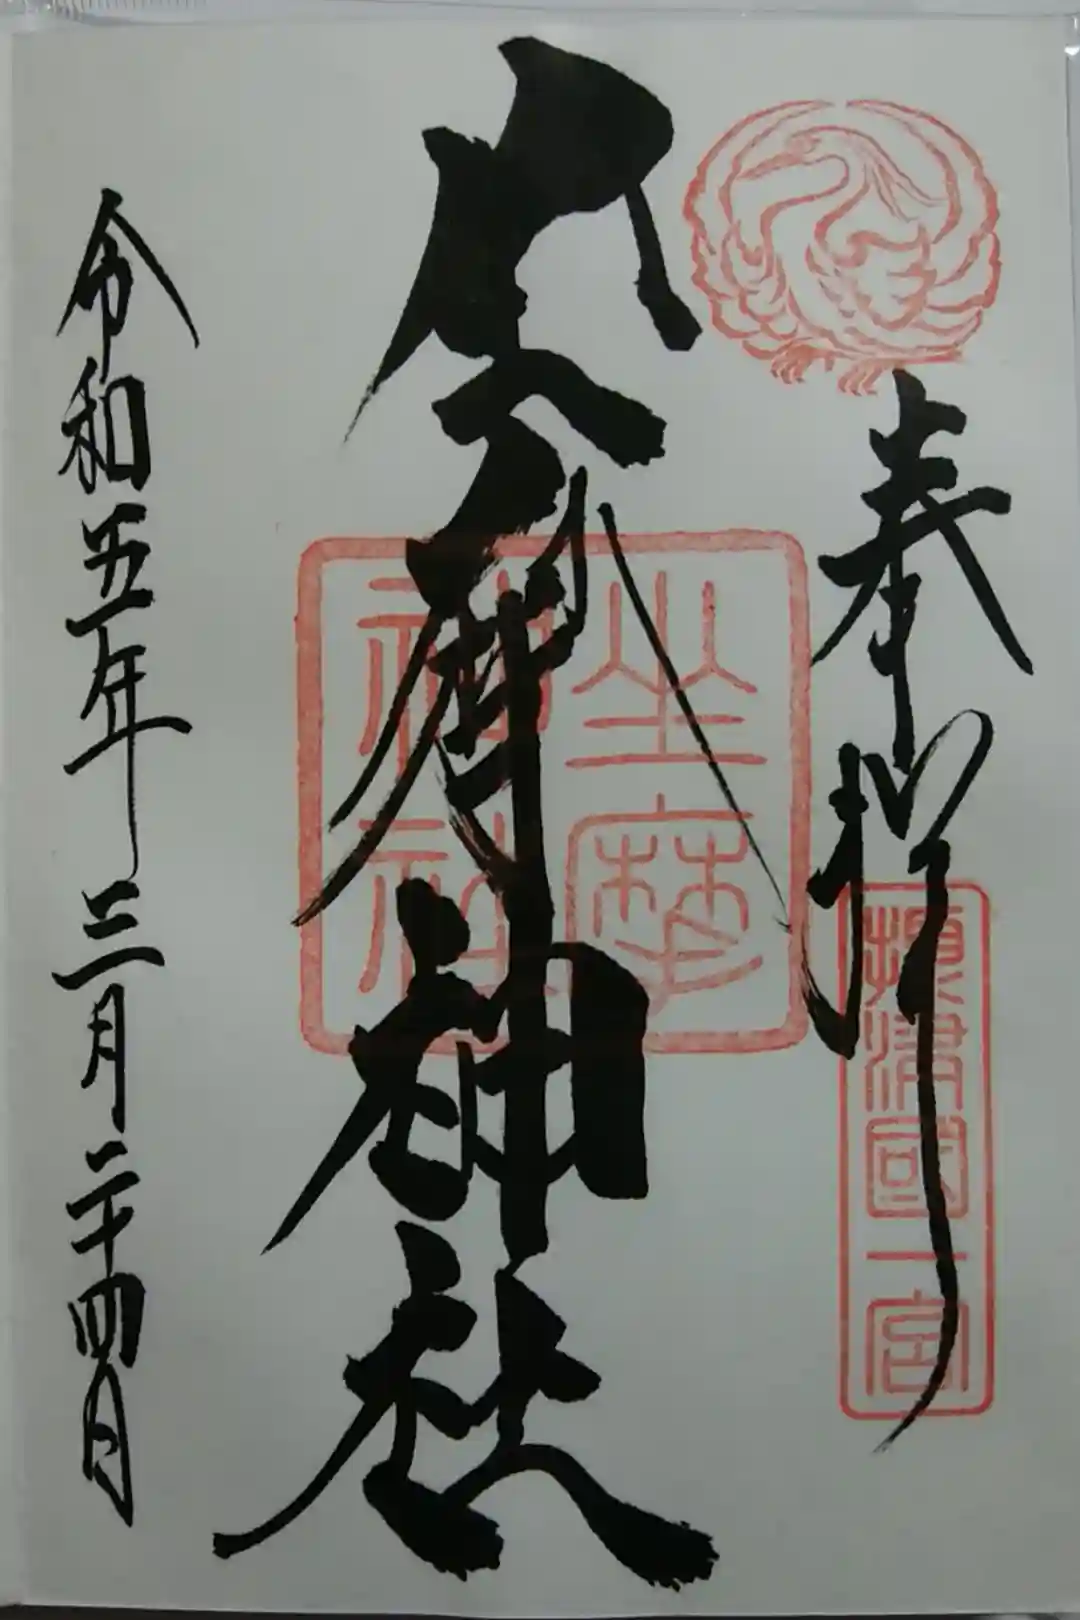 奉拝
摂津國一宮
坐摩神社
坐摩神社
令和五年三月二十四日